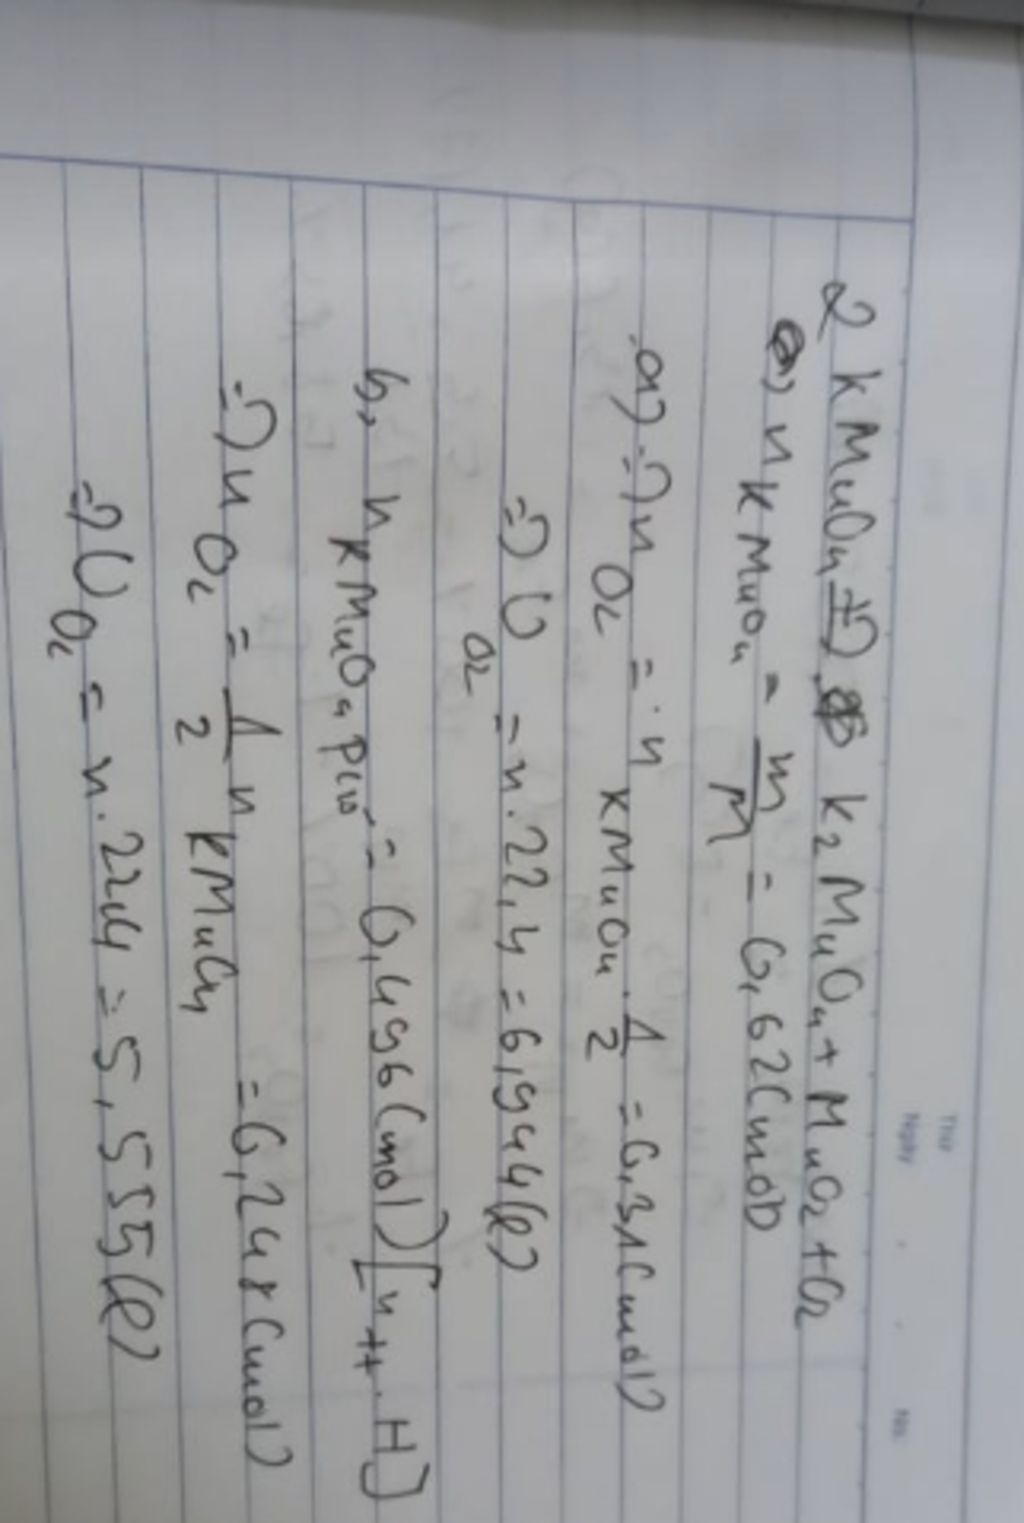 Thứ
Ngày
No.
2 KMnO4 =t°> K2MnO4 + MnO2 + O2
n KMnO4 = m/M = 0,62 (mol)
a) => n O2 = n KMnO4 . 1/2 = 0,31 (mol)
=> V O2 = n . 22,4 = 6,944 (l)
b, n KMnO4 pứ = 0,496 (mol) [n tt . H]
=> n O2 = 1/2 n KMnO4 = 0,248 (mol)
=> V O2 = n . 22,4 = 5,555 (l)